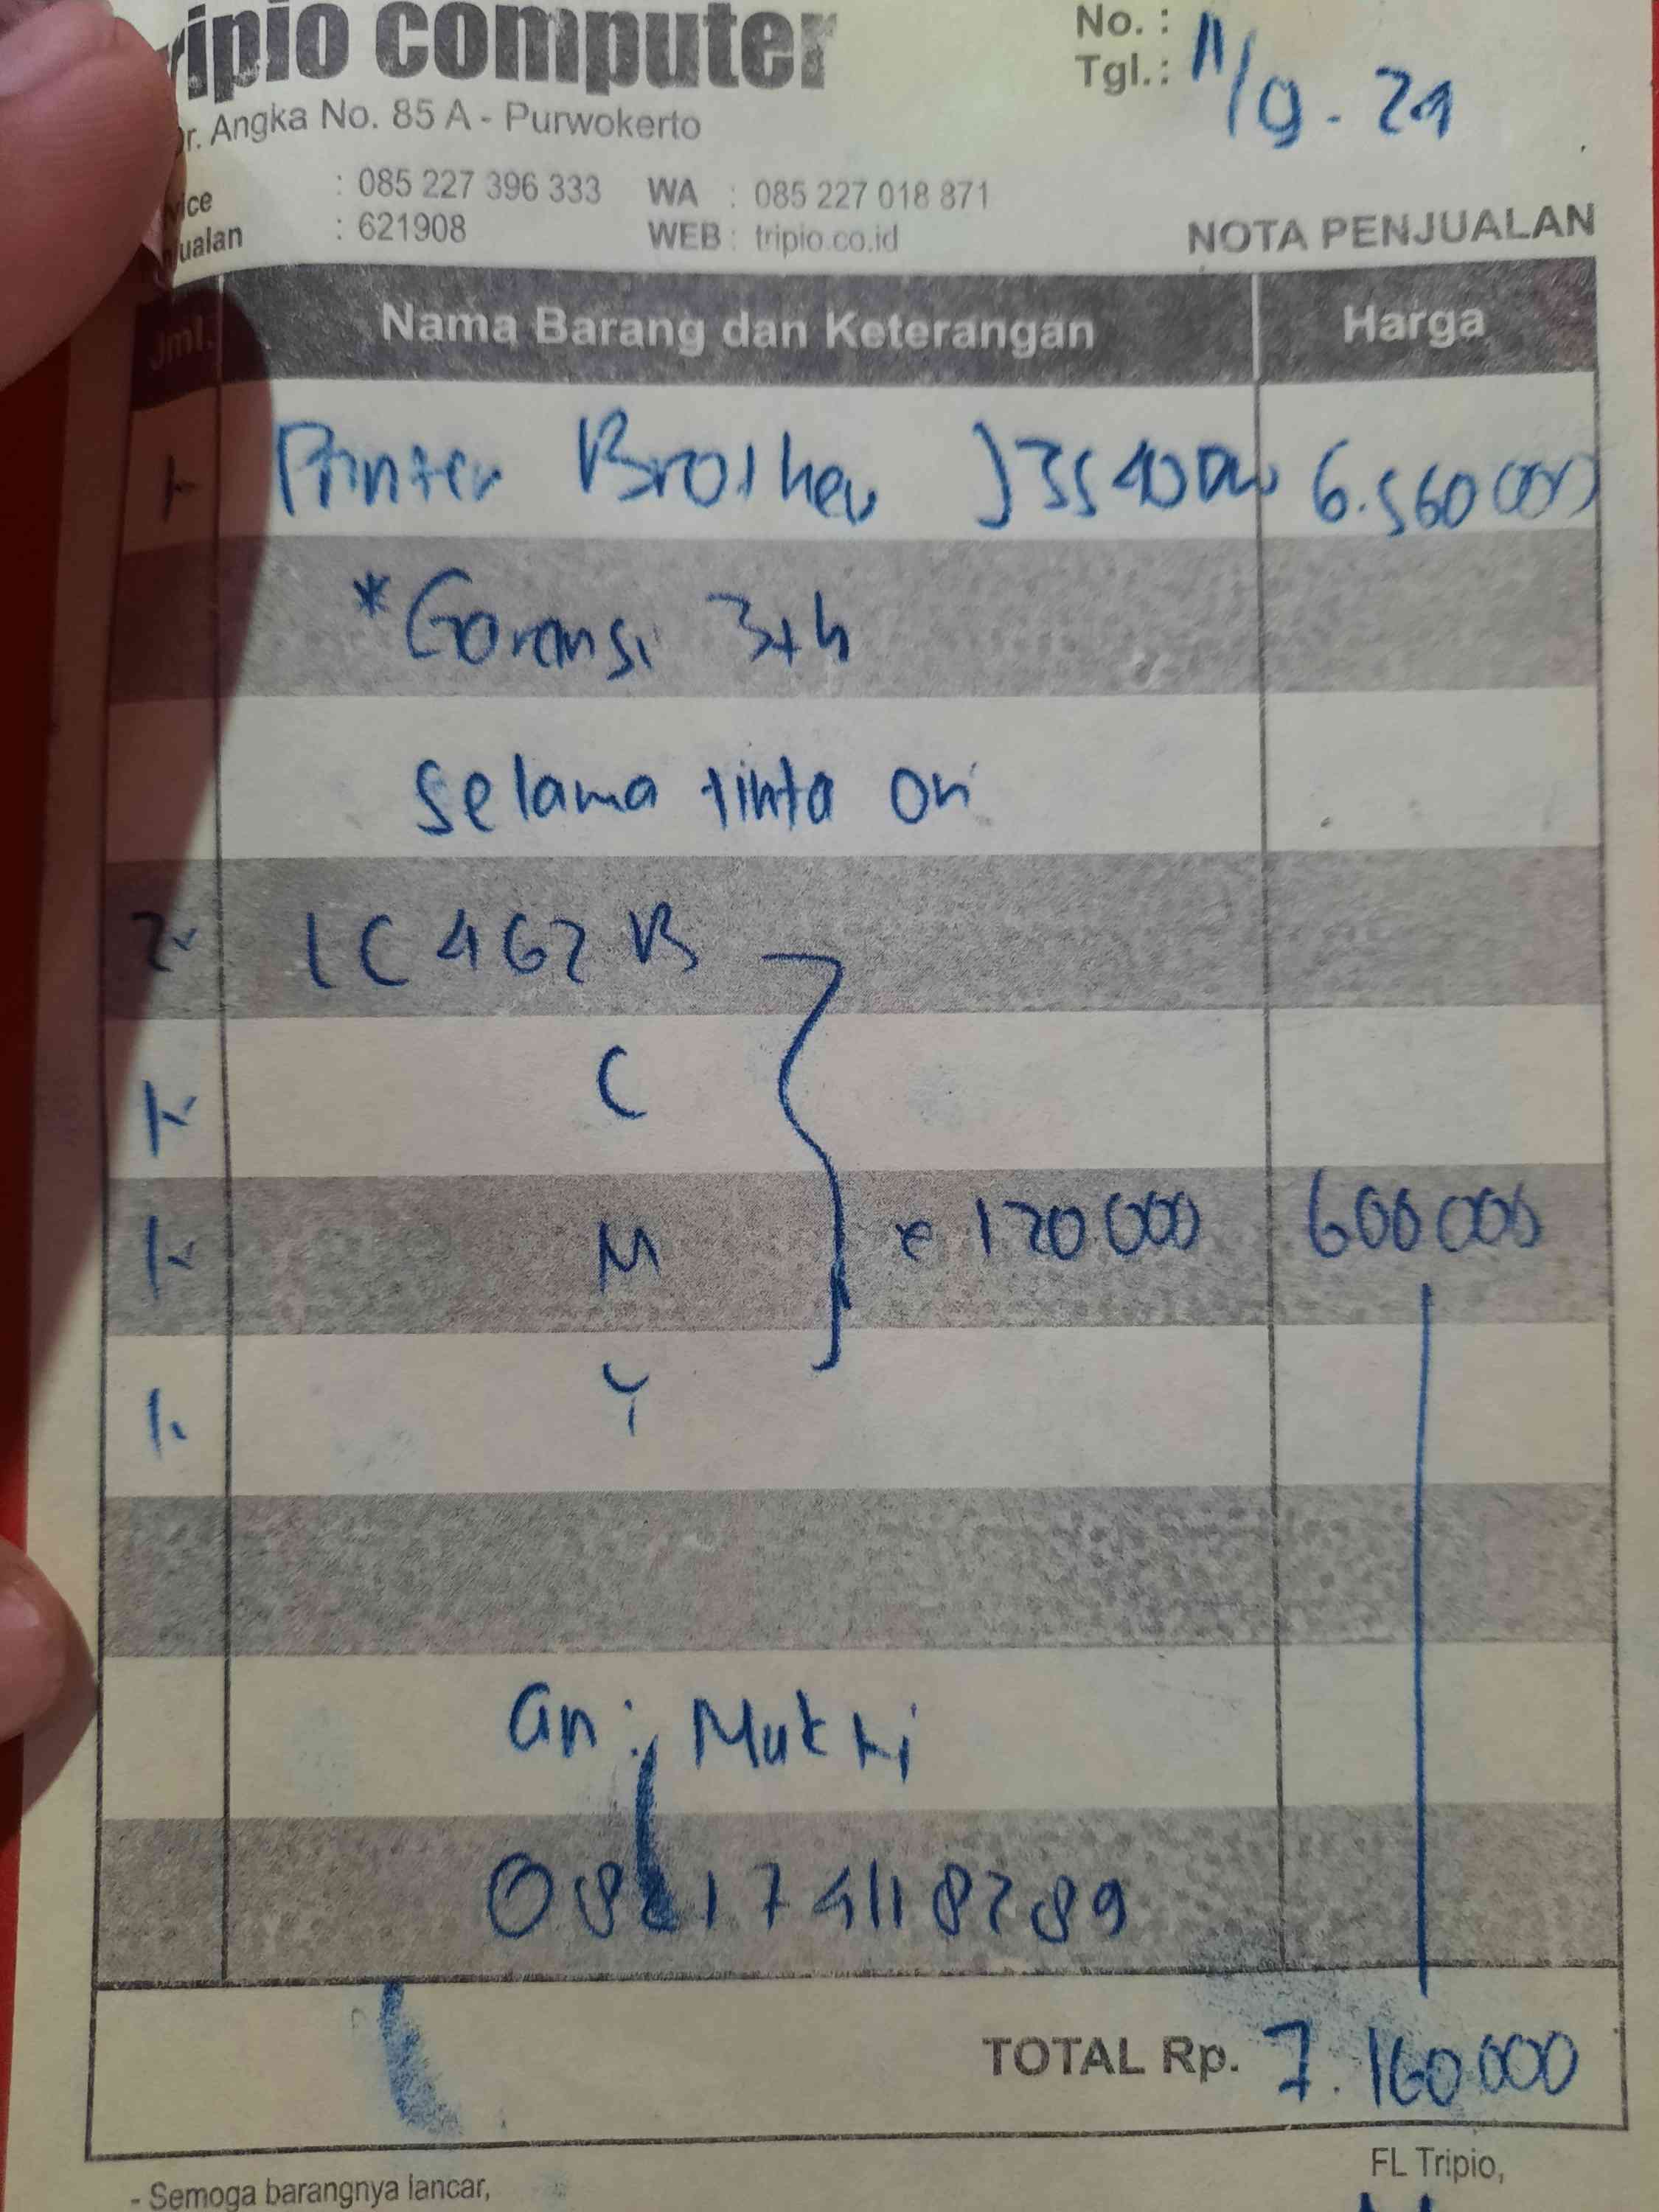 ripio computer
No. :
Tgl.: 11/9 - 21
Dr. Angka No. 85 A - Purwokerto
vice : 085 227 396 333 WA : 085 227 018 871
jualan : 621908 WEB : tripio.co.id
NOTA PENJUALAN
Jml. Nama Barang dan Keterangan Harga
1 Printer Brother J3540DW 6.560 000
*Garansi 3th
selama tinta ori
2 LC 462 B
1 C
1 M @ 120 000 600 000
1 Y
an : Mukti
TOTAL Rp. 7.160 000
FL Tripio,
- Semoga barangnya lancar,